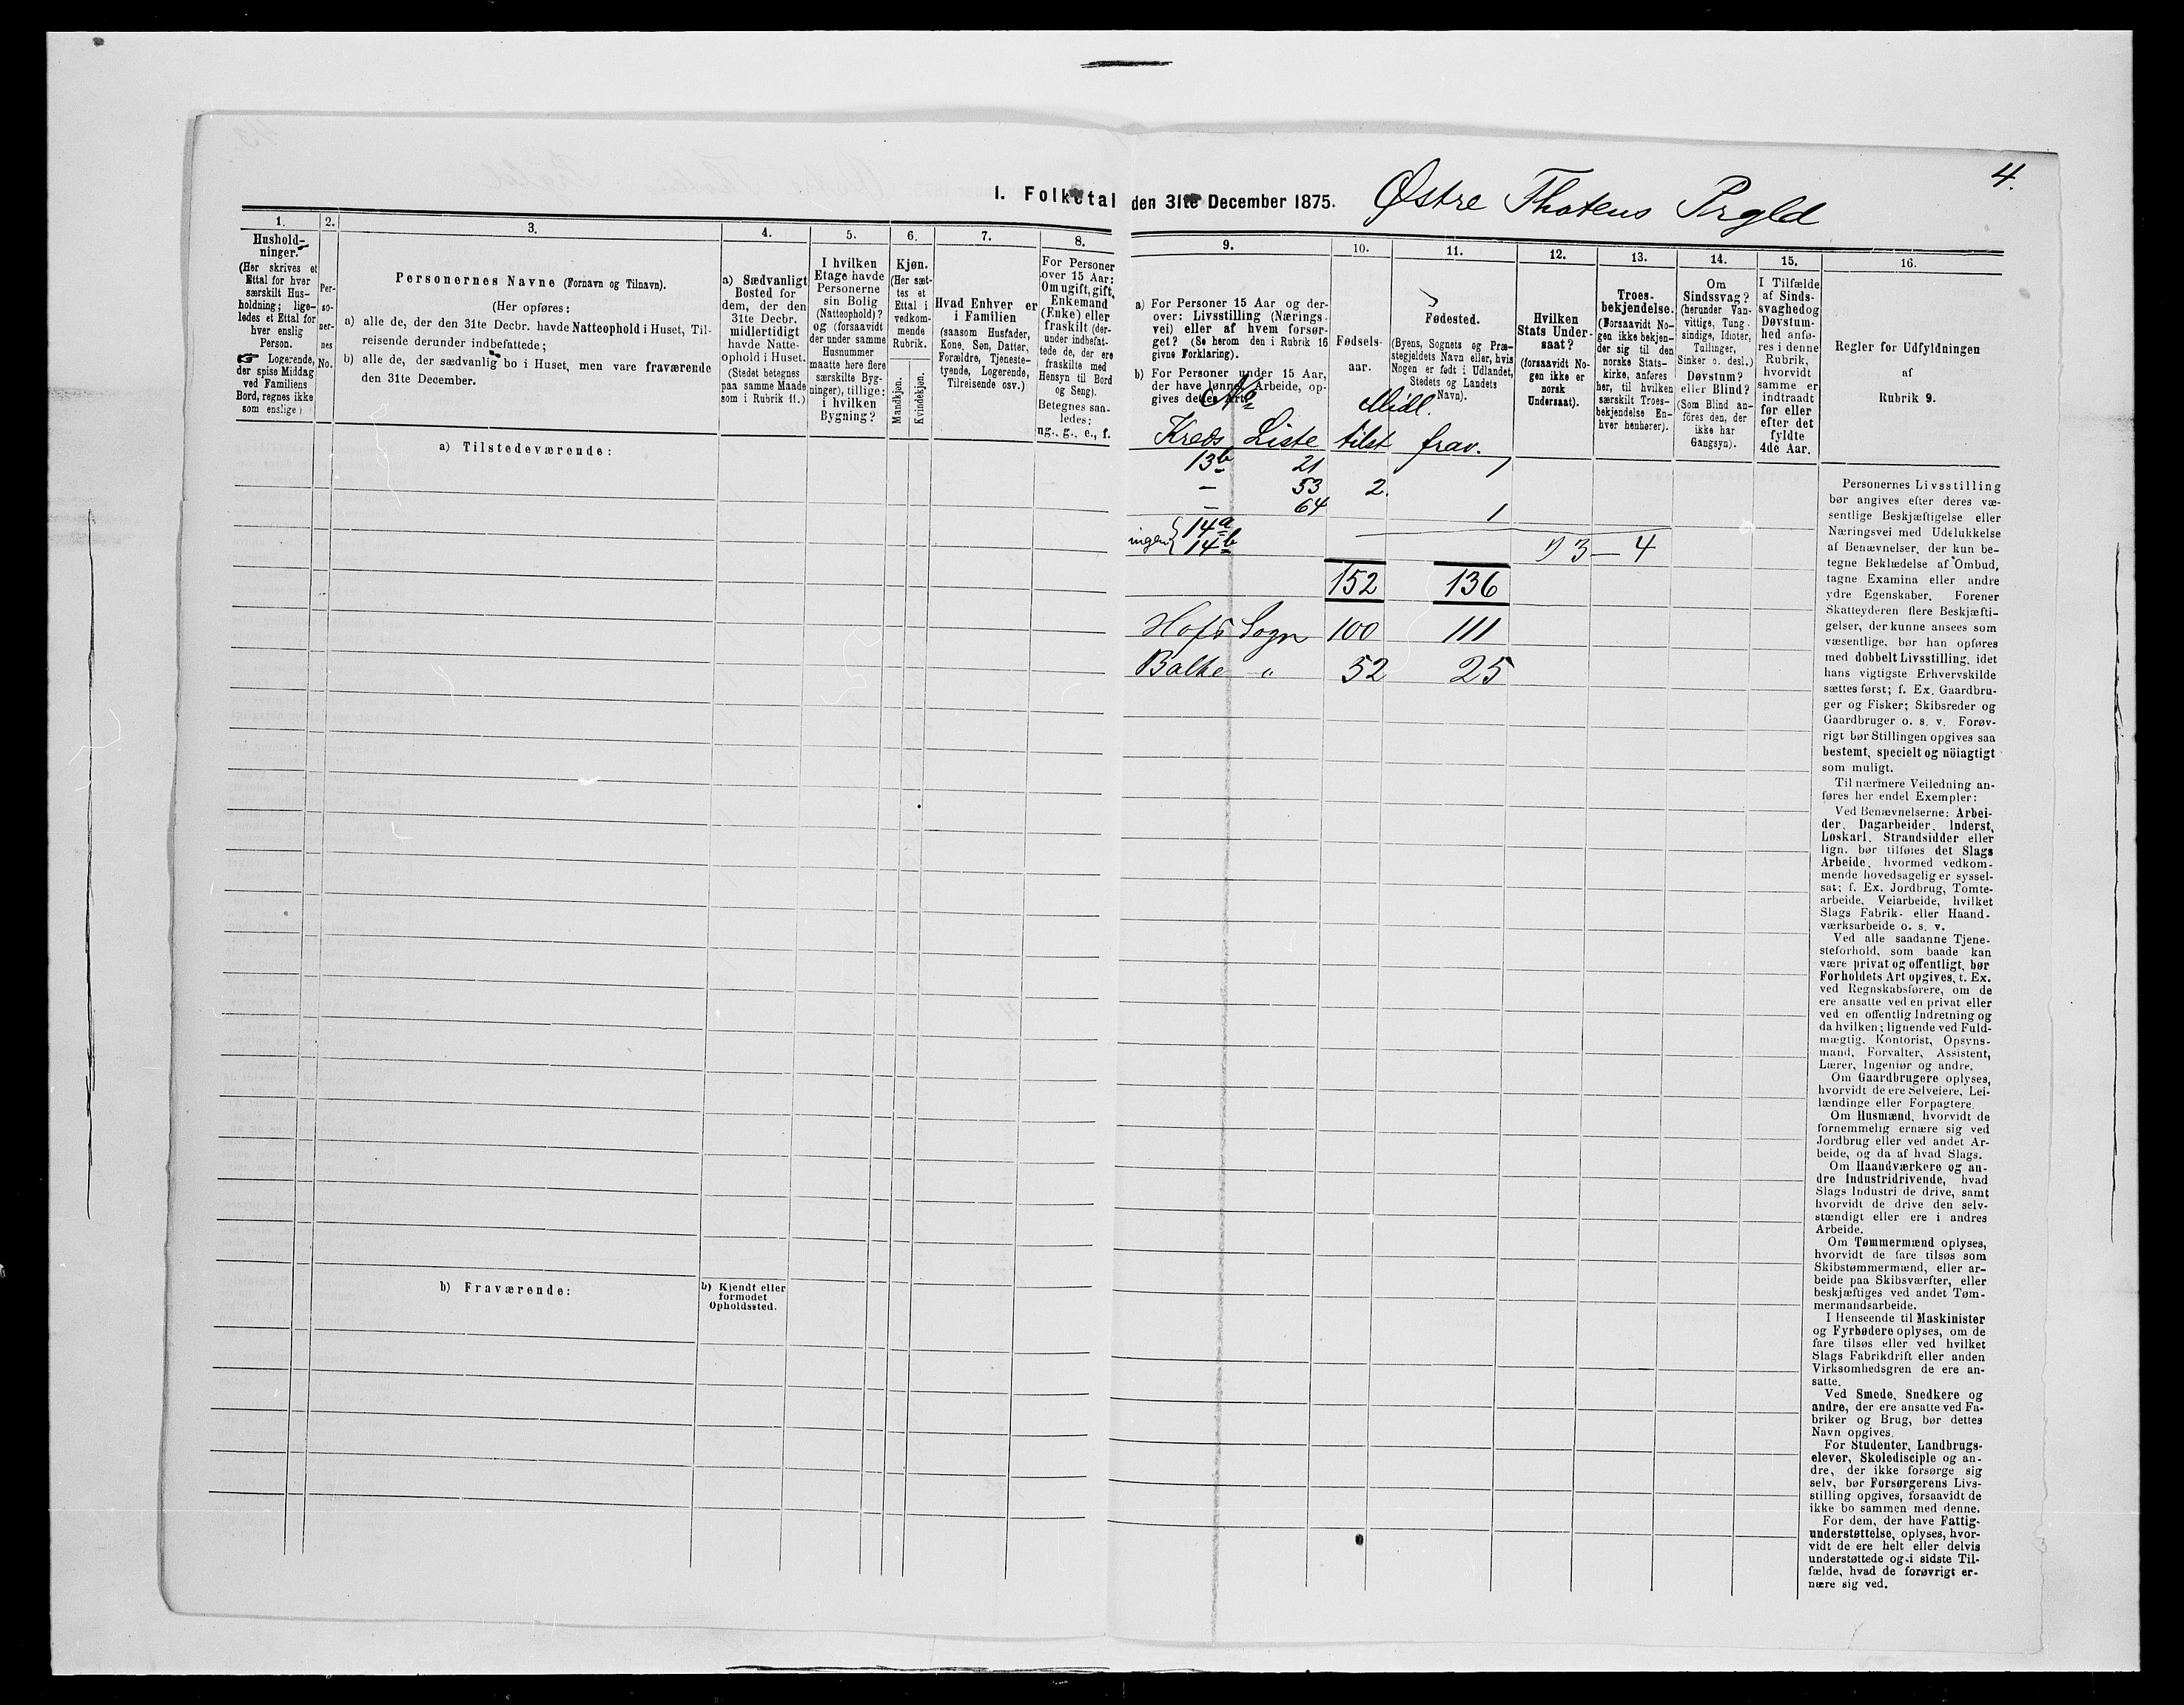 4.
I. Folketal den 31te December 1875. Østre Thotens Prgld
1.
Hushold-
ninger.
(Her skrives et
Ettal for hver
særskilt Hus-
holdning; lige-
ledes et Ettal for
hver enslig
Person.
☞ Logerende,
der spise Middag
ved Familiens
Bord, regnes ikke
som enslige)
2.
Per-
so-
ner-
nes
No.
3.
Personernes Navne (Fornavn og Tilnavn).
(Her opføres:
a) alle de, der den 31te Decbr. havde Natteophold i Huset, Til-
reisende derunder indbefattede;
b) alle de, der sædvanlig bo i Huset, men vare fraværende
den 31te December.
4.
a) Sædvanligt
Bosted for
dem, der den
31te Decbr.
midlertidigt
havde Natte-
ophold i Huset.
(Stedet betegnes
paa samme Maade
som i Rubrik 11.)
5.
I hvilken
Etage havde
Personerne
sin Bolig
(Natteophold)?
og (forsaavidt
der under samme
Husnummer
maatte høre flere
særskilte Byg-
ninger), tillige:
i hvilken
Bygning?
6.
Kjøn.
(Her sæt-
tes et
Ettal i
vedkom-
mende
Rubrik.
Mandkjøn.
Kvindekjøn.
7.
Hvad Enhver er
i Familien
(saasom Husfader,
Kone, Søn, Datter,
Forældre, Tjeneste-
tyende, Logerende,
Tilreisende osv.)
8.
For Personer
over 15 Aar:
Om ugift, gift,
Enkemand
(Enke) eller
fraskilt (der-
under indbefat-
tede de, der ere
fraskilte med
Hensyn til Bord
og Seng).
Betegnes saa-
ledes:
ug., g., e., f.
9.
a) For Personer 15 Aar og der-
over: Livsstilling (Nærings-
vei) eller af hvem forsør-
get? (Se herom den i Rubrik 16
givne Forklaring).
b) For Personer under 15 Aar,
der have lønnet Arbeide, op-
gives dettes Art.
10.
Fødsels-
aar.
11.
Fødested.
(Byens, Sognets og Præ-
stegjeldets Navn eller, hvis
Nogen er født i Udlandet,
Stedets og Landets
Navn).
12.
Hvilken
Stats Under-
saat?
(forsaavidt No-
gen ikke er
norsk
Undersaat).
13.
Troes-
bekjendelse.
(Forsaavidt No-
gen ikke bekjen-
der sig til den
norske Stats-
kirke, anføres
her, til hvilken
særskilt Troes-
bekjendelse En-
hver henhører).
14.
Om
Sindssvag?
(herunder Van-
vittige, Tung-
sindige, Idioter,
Tullinger,
Sinker o. desl.)
Døvstum?
eller Blind?
(Som Blind an-
føres den, der
ikke har
Gangsyn).
15.
I Tilfælde
af Sinds-
svaghed og
Døvstum-
hed anfø-
res i denne
Rubrik,
hvorvidt
samme er
indtraadt
før eller
efter det
fyldte
4de Aar.
16.
Regler for Udfyldningen
af
Rubrik 9.
a) Tilstedeværende:
No. Midl.
Kreds Liste tilst frav.
13b 21 1
— 53 2.
— 64 1
ingen { 14a
14b
1) 3 — 4
152 136
Hofs Sogn 100 111
Balke " 52 25
b) Fraværende:
b) Kjendt eller
formodet
Opholdssted.
Personernes Livsstilling
bør angives efter deres væ-
sentlige Beskjæftigelse eller
Næringsvei med Udelukkelse
af Benævnelser, der kun be-
tegne Beklædelse af Ombud,
tagne Examina eller andre
ydre Egenskaber. Forener
Skatteyderen flere Beskjæfti-
gelser, der kunne ansees som
væsentlige, bør han opføres
med dobbelt Livsstilling, idet
hans vigtigste Erhvervskilde
sættes først; f. Ex. Gaardbru-
ger og Fisker; Skibsreder og
Gaardbruger o. s. v. Forøv-
rigt bør Stillingen opgives saa
bestemt, specielt og nöiagtigt
som muligt.
Til nærmere Veiledning an-
føres her endel Exempler:
Ved Benævnelserne: Arbei-
der, Dagarbeider, Inderst,
Løskarl, Strandsidder eller
lign. bør tilføies det Slags
Arbeide, hvormed vedkom-
mende hovedsagelig er syssel-
sat; f. Ex. Jordbrug, Tomte-
arbeide, Veiarbeide, hvilket
Slags Fabrik- eller Haand-
værksarbeide o. s. v.
Ved alle saadanne Tjene-
steforhold, som baade kan
være privat og offentligt, bør
Forholdets Art opgives, t. Ex.
ved Regnskabsførere, om de
ere ansatte ved en privat eller
ved en offentlig Indretning og
da hvilken; lignende ved Fuld-
mægtig, Kontorist, Opsyns-
mand, Forvalter, Assistent,
Lærer, Ingeniør og andre.
Om Gaardbrugere oplyses,
hvorvidt de ere Selveiere, Lei-
lændinge eller Forpagtere.
Om Husmænd, hvorvidt de
fornemmelig ernære sig ved
Jordbrug eller ved andet Ar-
beide, og da af hvad Slags.
Om Haandværkere og an-
dre Industridrivende, hvad
Slags Industri de drive, samt
hvorvidt de drive den selv-
stændigt eller ere i andres
Arbeide.
Om Tømmermænd oplyses,
hvorvidt de fare tilsøs som
Skibstømmermænd, eller ar-
beide paa Skibsværfter, eller
beskjæftiges ved andet Tøm-
mermandsarbeide.
I Henseende til Maskinister
og Fyrbødere oplyses, om de
fare tilsøs eller ved hvilket
Slags Fabrikdrift eller anden
Virksomhedsgren de ere an-
satte.
Ved Smede, Snedkere og
andre, der ere ansatte ved Fa-
briker og Brug, bør dettes
Navn opgives.
For Studenter, Landbrugs-
elever, Skoledisciple og an-
dre, der ikke forsørge sig
selv, bør Forsørgerens Livs-
stilling opgives, forsaavidt de
ikke bo sammen med denne.
For dem, der have Fattig-
understøttelse, oplyses, hvor-
vidt de ere helt eller delvis
understøttede og i sidste Til-
fælde, hvad de forøvrigt er-
nære sig ved.